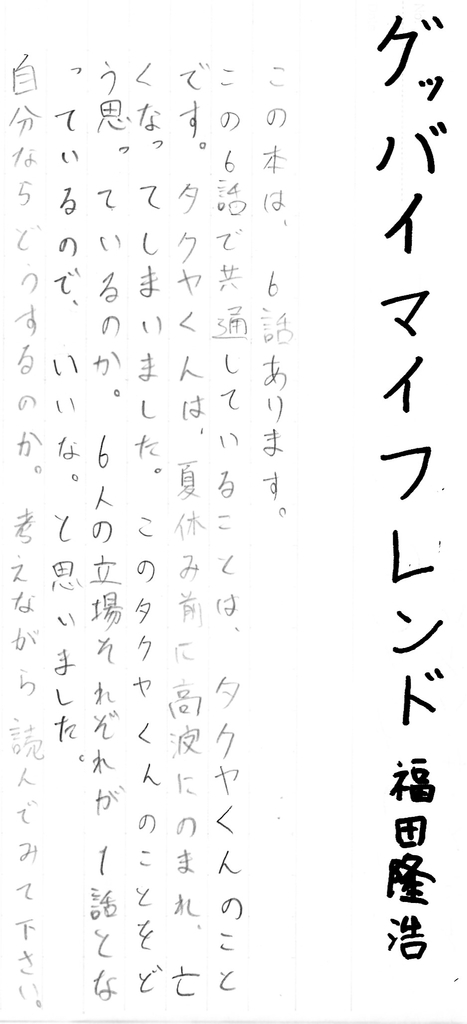 グッバイマイフレンド 福田隆浩
この本は、6話あります。
この6話で共通していることは、タクヤくんのこと
です。タクヤくんは、夏休み前に高波にのまれ、亡
くなってしまいました。このタクヤくんのことをど
う思っているのか。6人の立場それぞれが1話とな
っているので、いいな。と思いました。
自分ならどうするのか。考えながら読んでみて下さい。